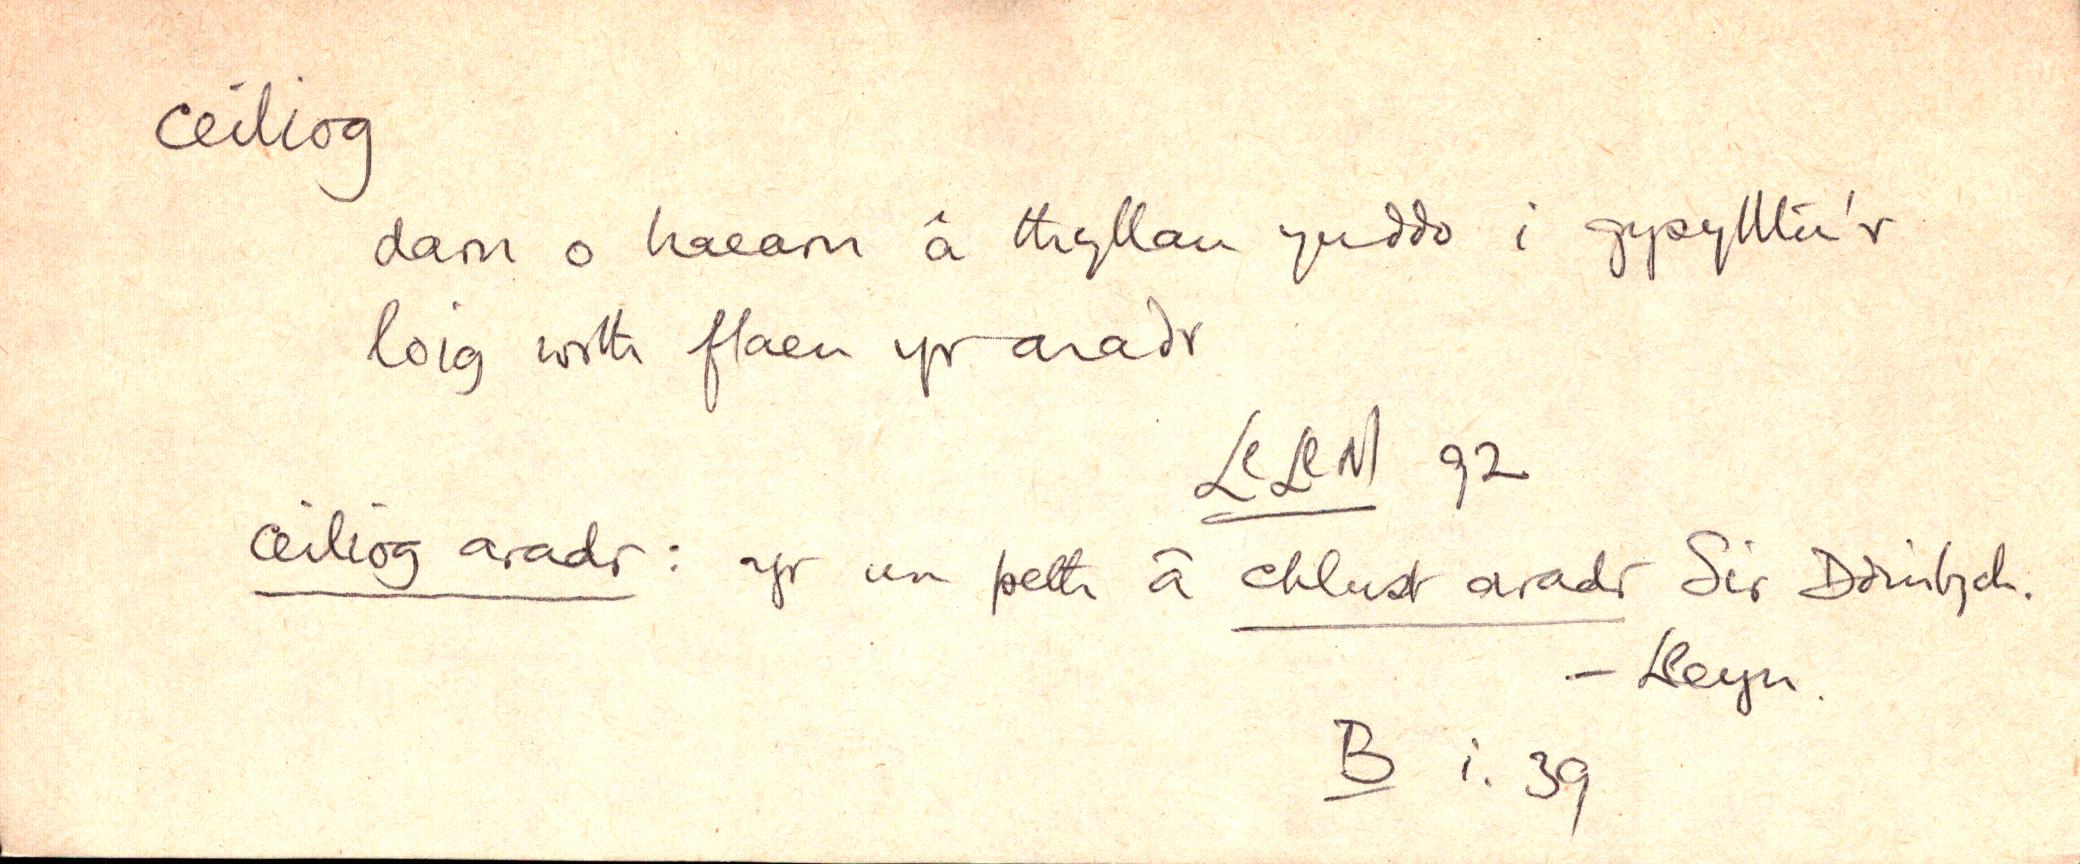 ceiliog
darn o haearn â thyllau ynddo i gysylltu'r
loig wrth flaen yr aradr
LlLlM 92
ceiliog aradr: yr un peth â chlust aradr Sir Ddinbych.
– Lleyn.
B i. 39